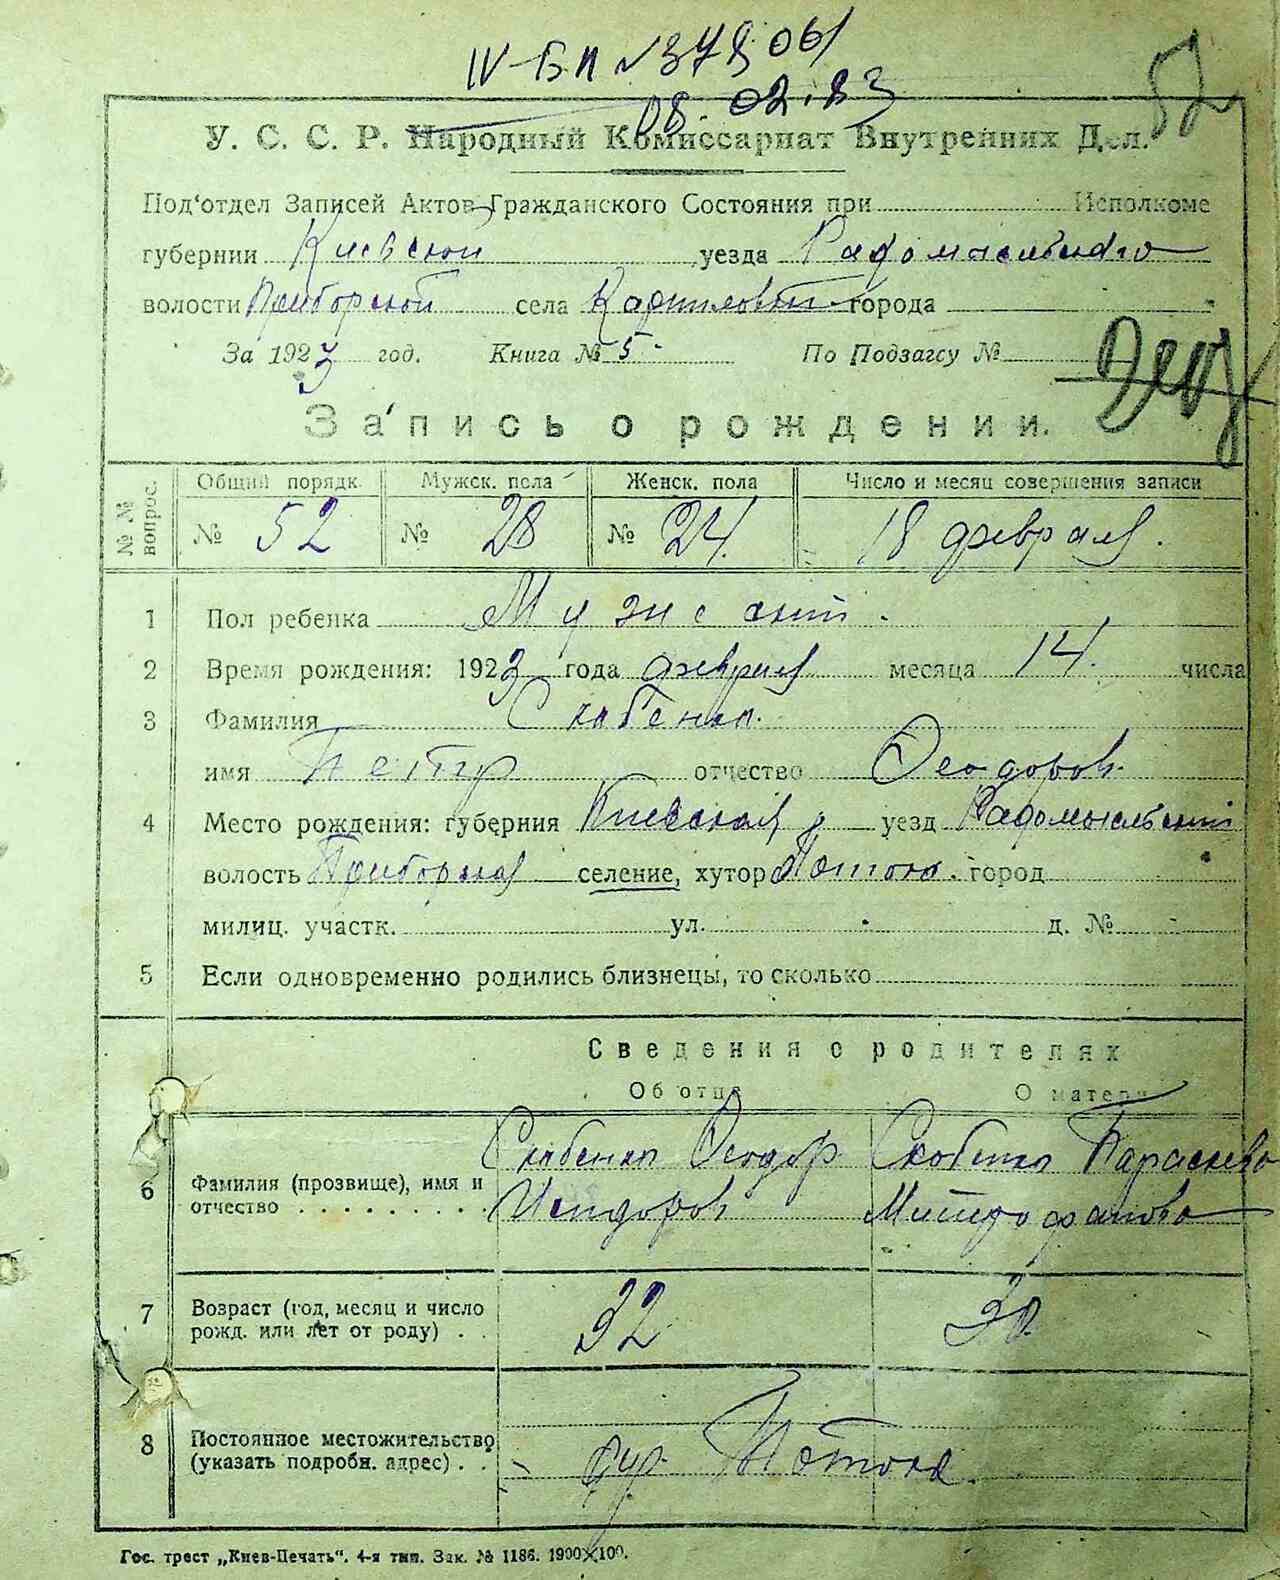 IV-БП №378061
08.02.83
52
У. С. С. Р. Народный Комиссариат Внутренних Дел.
Под'отдел Записей Актов Гражданского Состояния при Исполкоме
губернии Киевской уезда Радомысльского
волости Приборской села города
За 1923 год. Книга № 5 По Подзагсу №
Запись о рождении.
№ № вопрос. Общий порядк. Мужск. пола Женск. пола Число и месяц совершения записи
№ 52 № 28 № 24. 18 февраля.
1 Пол ребенка Мужской.
2 Время рождения: 1923 года февраля месяца 14. числа
3 Фамилия Скабенка.
имя Петр отчество Феодоров.
4 Место рождения: губерния Киевская уезд Радомысльский
волость Приборская селение, хутор Потоки. город
милиц. участк. ул. д. №
5 Если одновременно родились близнецы, то сколько
Сведения о родителях
Об отце О матери
Скабенка Феодор Скобенка Параскева
6 Фамилия (прозвище), имя и отчество Исидоров Митрофанова
7 Возраст (год, месяц и число рожд. или лет от роду) 32 30.
8 Постоянное местожительство (указать подробн. адрес) хут. Потоки.
Гос. трест „Киев-Печать“. 4-я тип. Зак. № 1186. 1900×100.